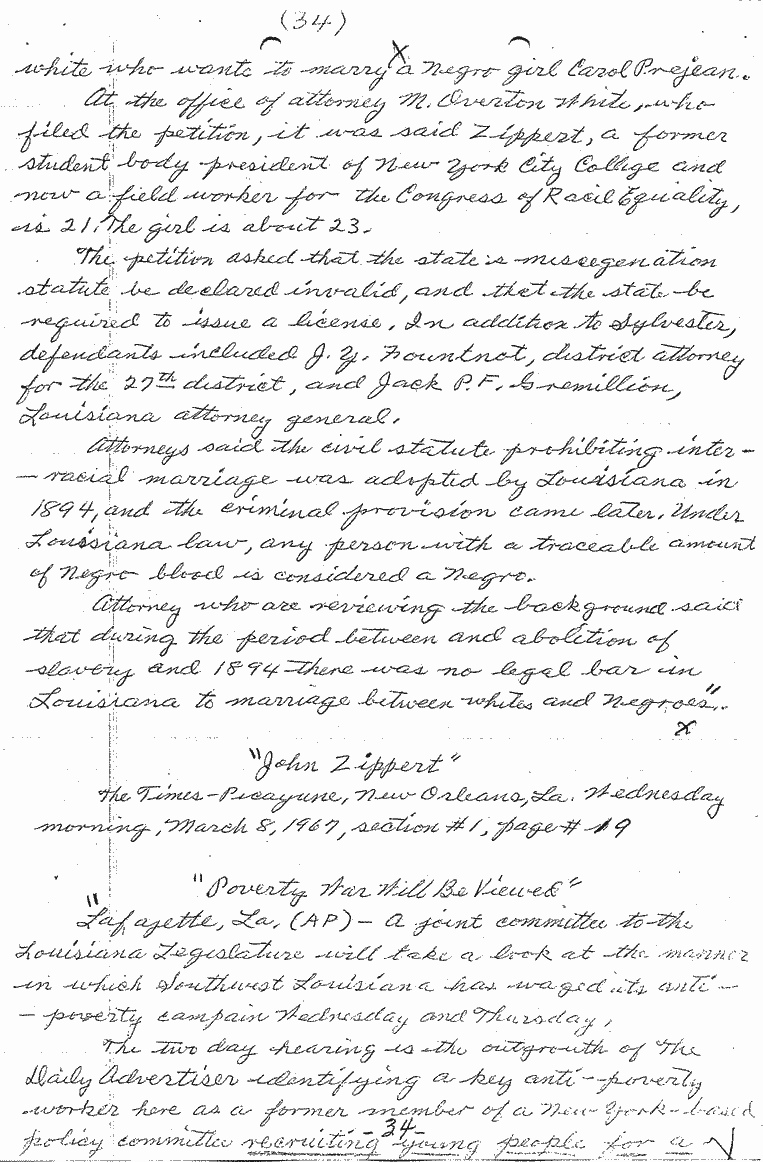 (34)
white who wants to marry a Negro girl Carol Prejean.
At the office of attorney M. Overton White, who
filed the petition, it was said Zippert, a former
student body president of New York City College and
now a field worker for the Congress of Racil Equality,
is 21. The girl is about 23.
The petition asked that the state's miscegenation
statute be declared invalid, and that the state be
required to issue a license. In addition to Sylvester,
defendants included J. Y. Fountnot, district attorney
for the 27th district, and Jack P.F. Gremillion,
Louisiana attorney general.
Attorneys said the civil statute prohibiting inter-
-racial marriage was adopted by Louisiana in
1894, and the criminal provision came later. Under
Louisiana law, any person with a traceable amount
of Negro blood is considered a Negro.
Attorney who are reviewing the background said
that during the period between and abolition of
slavery and 1894 there was no legal bar in
Louisiana to marriage between whites and Negroes".
x
"John Zippert"
The Times-Picayune, New Orleans, La. Wednesday
morning, March 8, 1967, section #1, page # 19
"Poverty War Will Be Viewed"
"Lafayette, La. (AP) - A joint committee to the
Louisiana Legislature will take a look at the manner
in which Southwest Louisiana has waged its anti-
-poverty campain Wednesday and Thursday,
The two day hearing is the outgrouth of The
Daily Advertiser identifying a key anti-poverty
worker here as a former member of a New York-based
policy committee recruiting young people for a
-34-